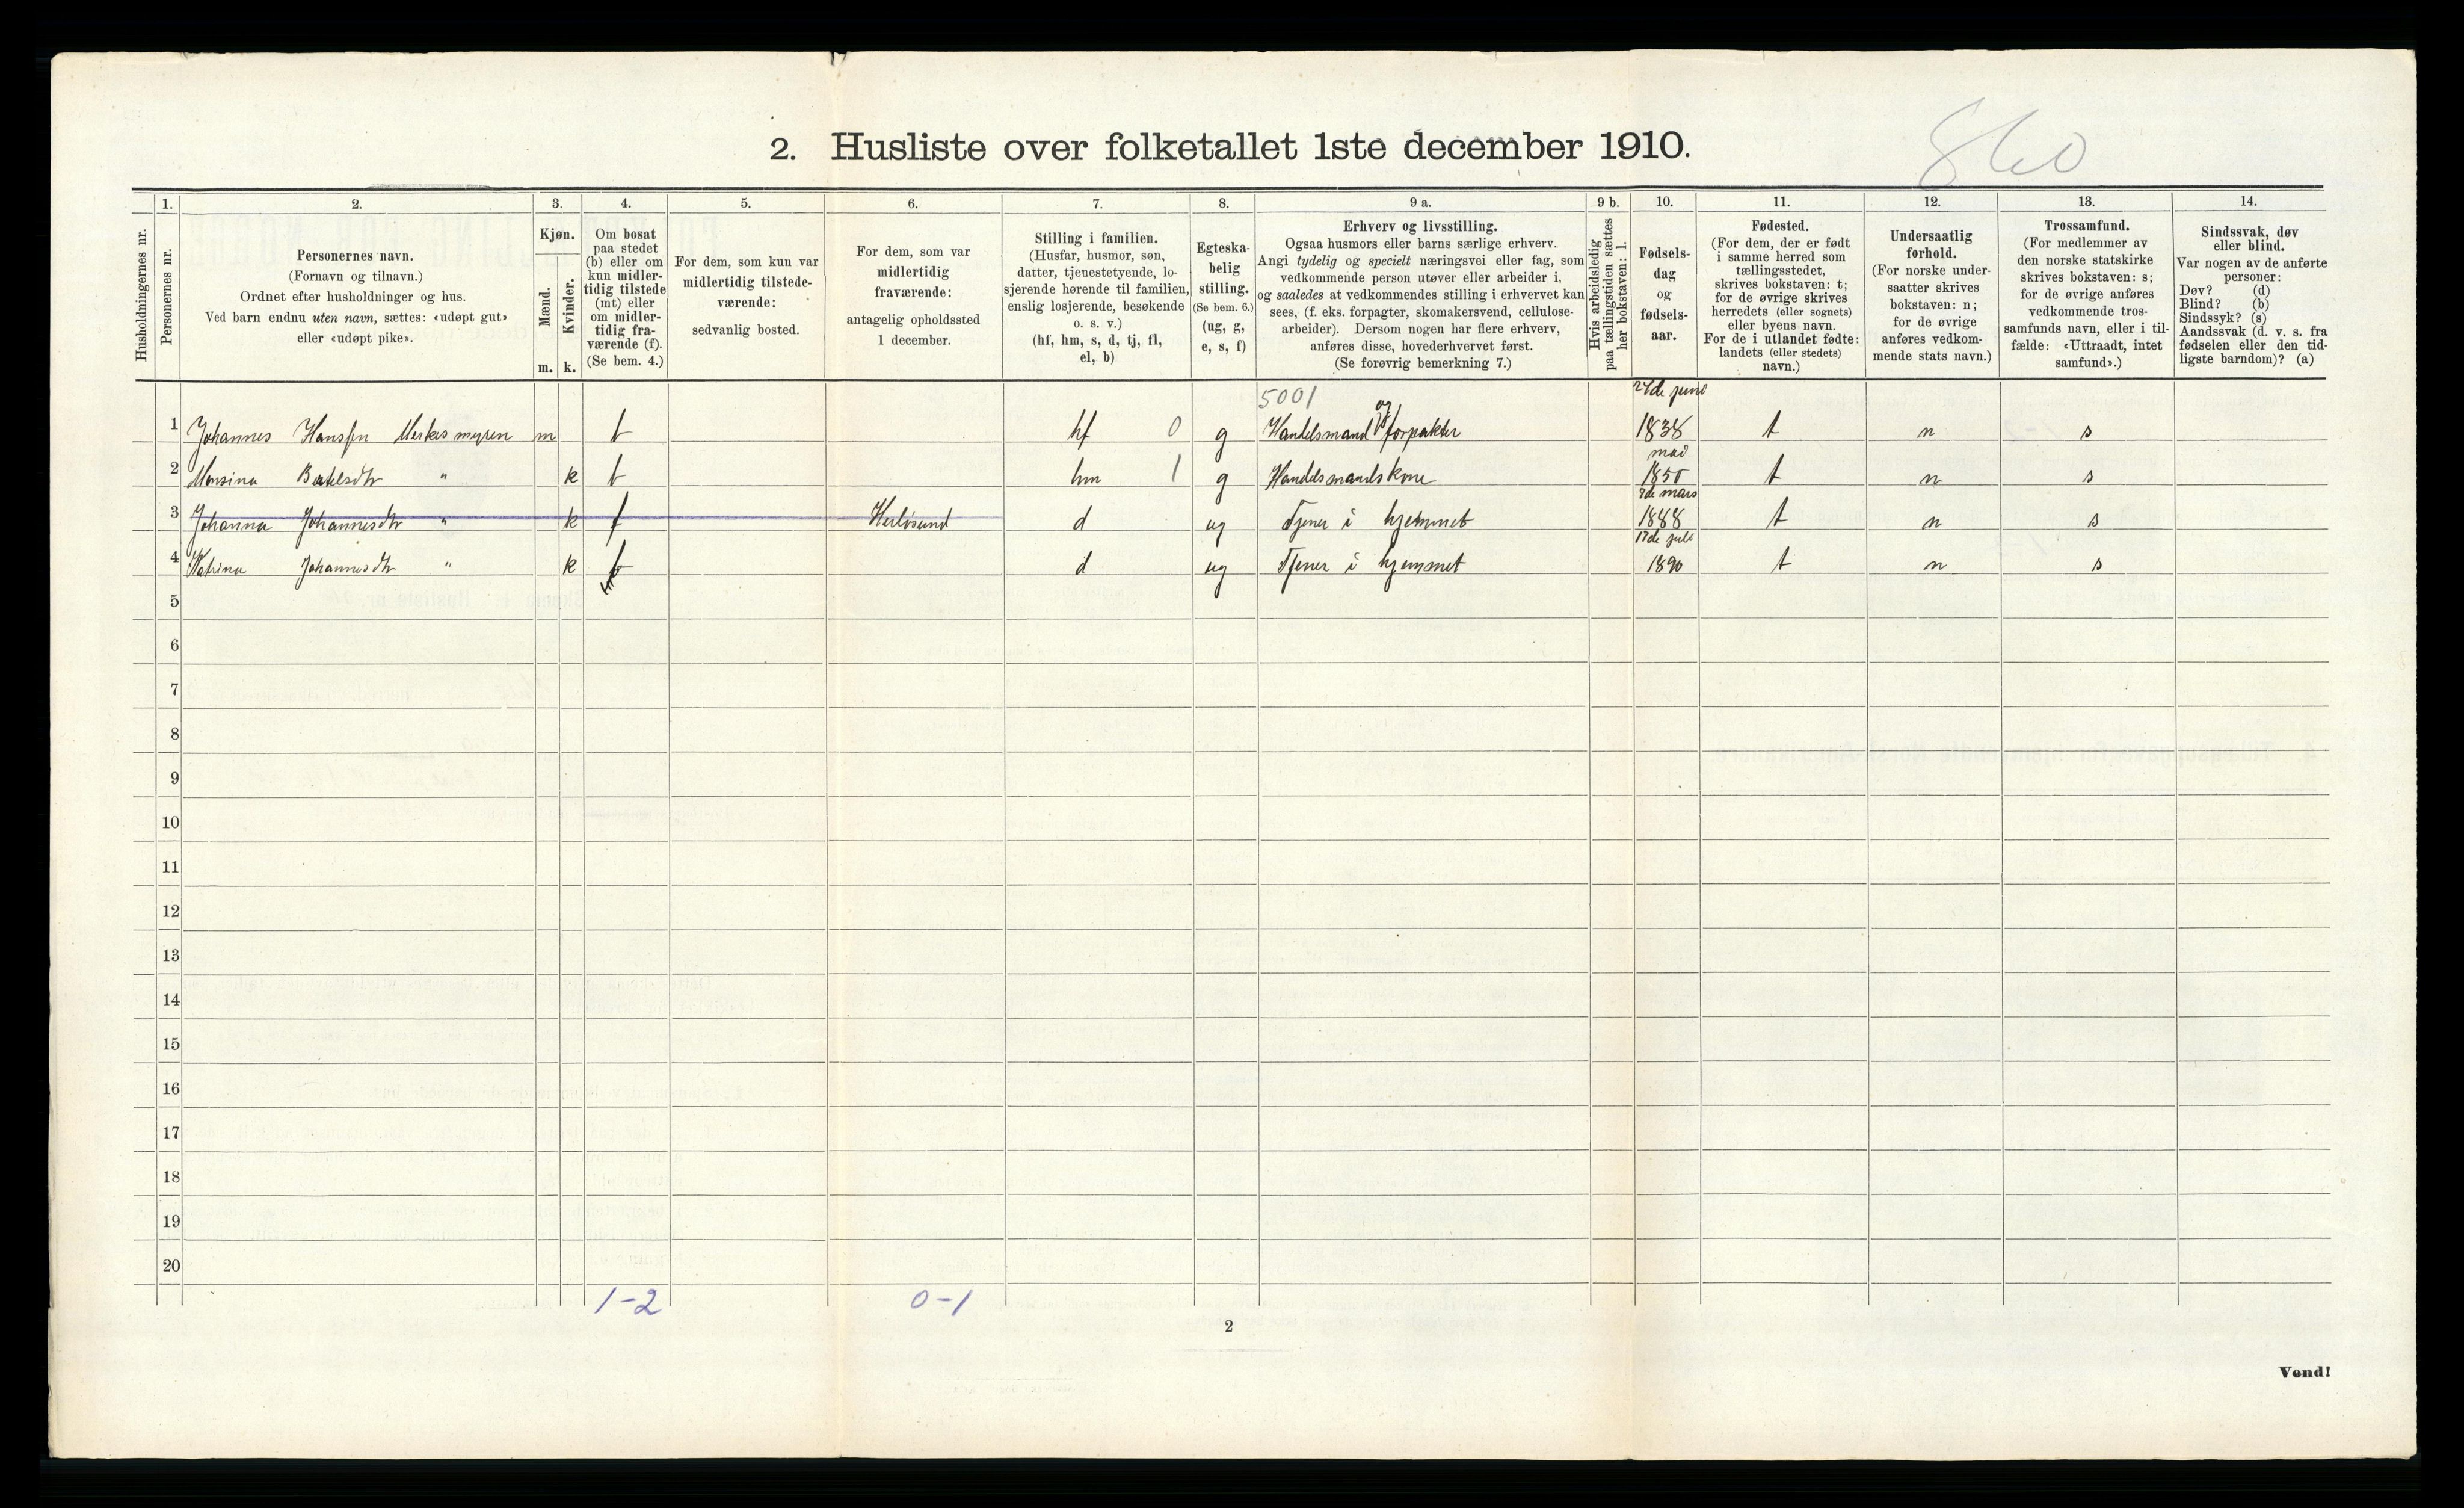 860
2. Husliste over folketallet 1ste december 1910.
1. 2. 3. 4. 5. 6. 7. 8. 9 a. 9 b. 10. 11. 12. 13. 14.
Husholdningernes nr.
Personernes nr.
Personernes navn.
(Fornavn og tilnavn.)
Ordnet efter husholdninger og hus.
Ved barn endnu uten navn, sættes: «udøpt gut»
eller «udøpt pike».
Kjøn.
Mænd.
Kvinder.
m. k.
Om bosat
paa stedet
(b) eller om
kun midler-
tidig tilstede
(mt) eller
om midler-
tidig fra-
værende (f).
(Se bem. 4.)
For dem, som kun var
midlertidig tilstede-
værende:
sedvanlig bosted.
For dem, som var
midlertidig
fraværende:
antagelig opholdssted
1 december.
Stilling i familien.
(Husfar, husmor, søn,
datter, tjenestetyende, lo-
sjerende hørende til familien,
enslig losjerende, besøkende
o. s. v.)
(hf, hm, s, d, tj, fl,
el, b)
Egteska-
belig
stilling.
(Se bem. 6.)
(ug, g,
e, s, f)
Erhverv og livsstilling.
Ogsaa husmors eller barns særlige erhverv.
Angi tydelig og specielt næringsvei eller fag, som
vedkommende person utøver eller arbeider i,
og saaledes at vedkommendes stilling i erhvervet kan
sees, (f. eks. forpagter, skomakersvend, cellulose-
arbeider). Dersom nogen har flere erhverv,
anføres disse, hovederhvervet først.
(Se forøvrig bemerkning 7.)
Hvis arbeidsledig
paa tællingstiden sættes
her bokstaven: l.
Fødsels-
dag
og
fødsels-
aar.
Fødested.
(For dem, der er født
i samme herred som
tællingsstedet,
skrives bokstaven: t;
for de øvrige skrives
herredets (eller sognets)
eller byens navn.
For de i utlandet fødte:
landets (eller stedets)
navn.)
Undersaatlig
forhold.
(For norske under-
saatter skrives
bokstaven: n;
for de øvrige
anføres vedkom-
mende stats navn.)
Trossamfund.
(For medlemmer av
den norske statskirke
skrives bokstaven: s;
for de øvrige anføres
vedkommende tros-
samfunds navn, eller i til-
fælde: «Uttraadt, intet
samfund».)
Sindssvak, døv
eller blind.
Var nogen av de anførte
personer:
Døv? (d)
Blind? (b)
Sindssyk? (s)
Aandssvak (d. v. s. fra
fødselen eller den tid-
ligste barndom)? (a)
5001
1 Johannes Hansen Merkesmyren m b hf 0 g Handelsmand og forpakter 24de juni 1838 t n s
2 Monsina Bertelsdtr " k b hm 1 g Handelsmandskone mai 1850 t n s
3 Johanna Johannesdtr " k f Herløsund d ug Tjener i hjemmet 7de mars 1888 t n s
4 Katrina Johannesdtr " k b d ug Tjener i hjemmet 17de juli 1890 t n s
5
6
7
8
9
10
11
12
13
14
15
16
17
18
19
20
1-2 0-1
2
Vend!